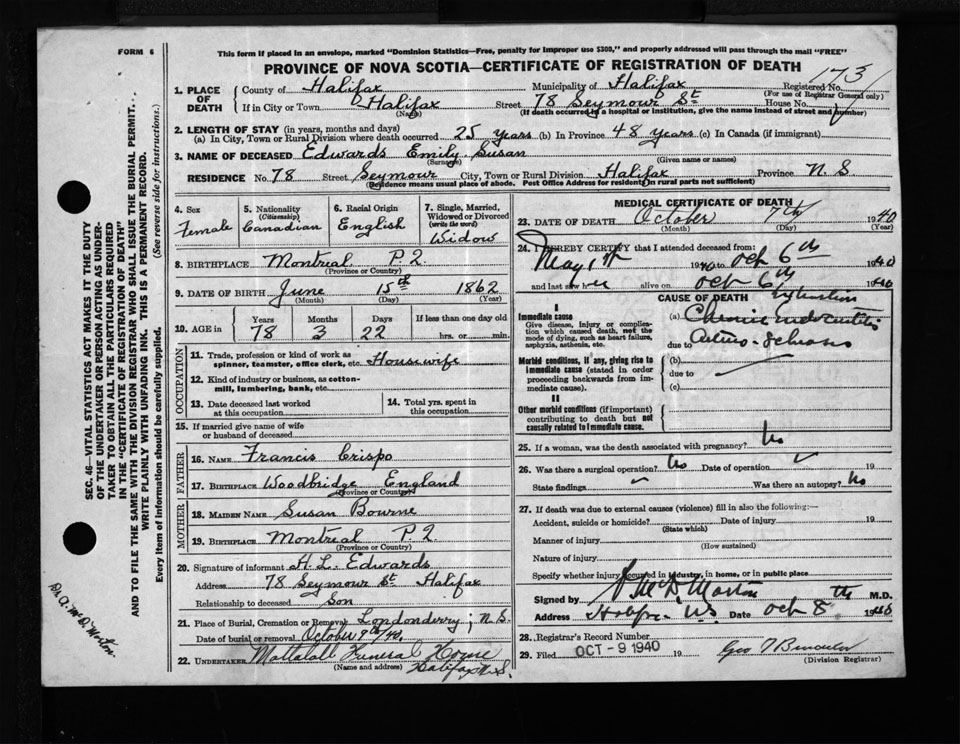 FORM 6
This form if placed in an envelope, marked "Dominion Statistics—Free, penalty for improper use $300," and properly addressed will pass through the mail "FREE"
PROVINCE OF NOVA SCOTIA—CERTIFICATE OF REGISTRATION OF DEATH
1. PLACE OF DEATH
County of Halifax Municipality of Halifax Registered No. 173
(For use of Registrar General only)
If in City or Town Halifax Street 78 Seymour St House No.
(Name) (If death occurred in a hospital or institution, give the name instead of street and number)
2. LENGTH OF STAY (in years, months and days)
(a) In City, Town or Rural Division where death occurred 25 years (b) In Province 48 years (c) In Canada (if immigrant)
3. NAME OF DECEASED Edwards Emily Susan
(Surname) (Given name or names)
RESIDENCE No. 78 Street Seymour City, Town or Rural Division Halifax Province N. S
(Residence means usual place of abode. Post Office Address for residents in rural parts not sufficient)
4. Sex Female
5. Nationality (Citizenship) Canadian
6. Racial Origin English
7. Single, Married, Widowed or Divorced (write the word) Widow
8. BIRTHPLACE Montreal P.Q.
(Province or Country)
9. DATE OF BIRTH June 15th 1862
(Month) (Day) (Year)
10. AGE in Years Months Days If less than one day old
78 3 22 hrs. or min.
OCCUPATION
11. Trade, profession or kind of work as spinner, teamster, office clerk, etc. Housewife
12. Kind of industry or business, as cotton-mill, lumbering, bank, etc.
13. Date deceased last worked at this occupation
14. Total yrs. spent in this occupation
15. If married give name of wife or husband of deceased
FATHER
16. NAME Francis Crispo
17. BIRTHPLACE Woodbridge England
(Province or Country)
MOTHER
18. MAIDEN NAME Susan Bourne
19. BIRTHPLACE Montreal P.Q.
(Province or Country)
20. Signature of informant H. L. Edwards
Address 78 Seymour St Halifax
Relationship to deceased Son
21. Place of Burial, Cremation or Removal Londonderry, N.S.
Date of burial or removal October 9th/40
22. UNDERTAKER Mattatall Funeral Home
(Name and address) Halifax N.S.
MEDICAL CERTIFICATE OF DEATH
23. DATE OF DEATH October 7th 1940
(Month) (Day) (Year)
24. I HEREBY CERTIFY that I attended deceased from:
May 1st 1940 to Oct 6th 1940
and last saw her alive on Oct 6th 1940
CAUSE OF DEATH
I
Immediate cause
Give disease, injury or complication which caused death, not the mode of dying, such as heart failure, asphyxia, asthenia, etc.
(a) Chronic
Morbid conditions, if any, giving rise to immediate cause (stated in order proceeding backwards from immediate cause).
(b)
(c)
II
Other morbid conditions (if important) contributing to death but not causally related to immediate cause.
25. If a woman, was the death associated with pregnancy? No
26. Was there a surgical operation? No Date of operation 19
State findings Was there an autopsy? No
27. If death was due to external causes (violence) fill in also the following:—
Accident, suicide or homicide? Date of injury 19
(State which)
Manner of injury
(How sustained)
Nature of injury
Specify whether injury occurred in industry, in home, or in public place
Signed by A McD Morton M.D.
Address Halifax N.S. Date Oct 8th 1940
28. Registrar's Record Number
29. Filed OCT - 9 1940 19 Geo
(Division Registrar)
SEC. 46—VITAL STATISTICS ACT MAKES IT THE DUTY
OF THE UNDERTAKER OR PERSON ACTING AS UNDER-
TAKER TO OBTAIN ALL THE PARTICULARS REQUIRED
IN THE "CERTIFICATE OF REGISTRATION OF DEATH"
AND TO FILE THE SAME WITH THE DIVISION REGISTRAR WHO SHALL ISSUE THE BURIAL PERMIT.
WRITE PLAINLY WITH UNFADING INK. THIS IS A PERMANENT RECORD.
Every item of information should be carefully supplied. (See reverse side for instructions.)
A. McD Morton